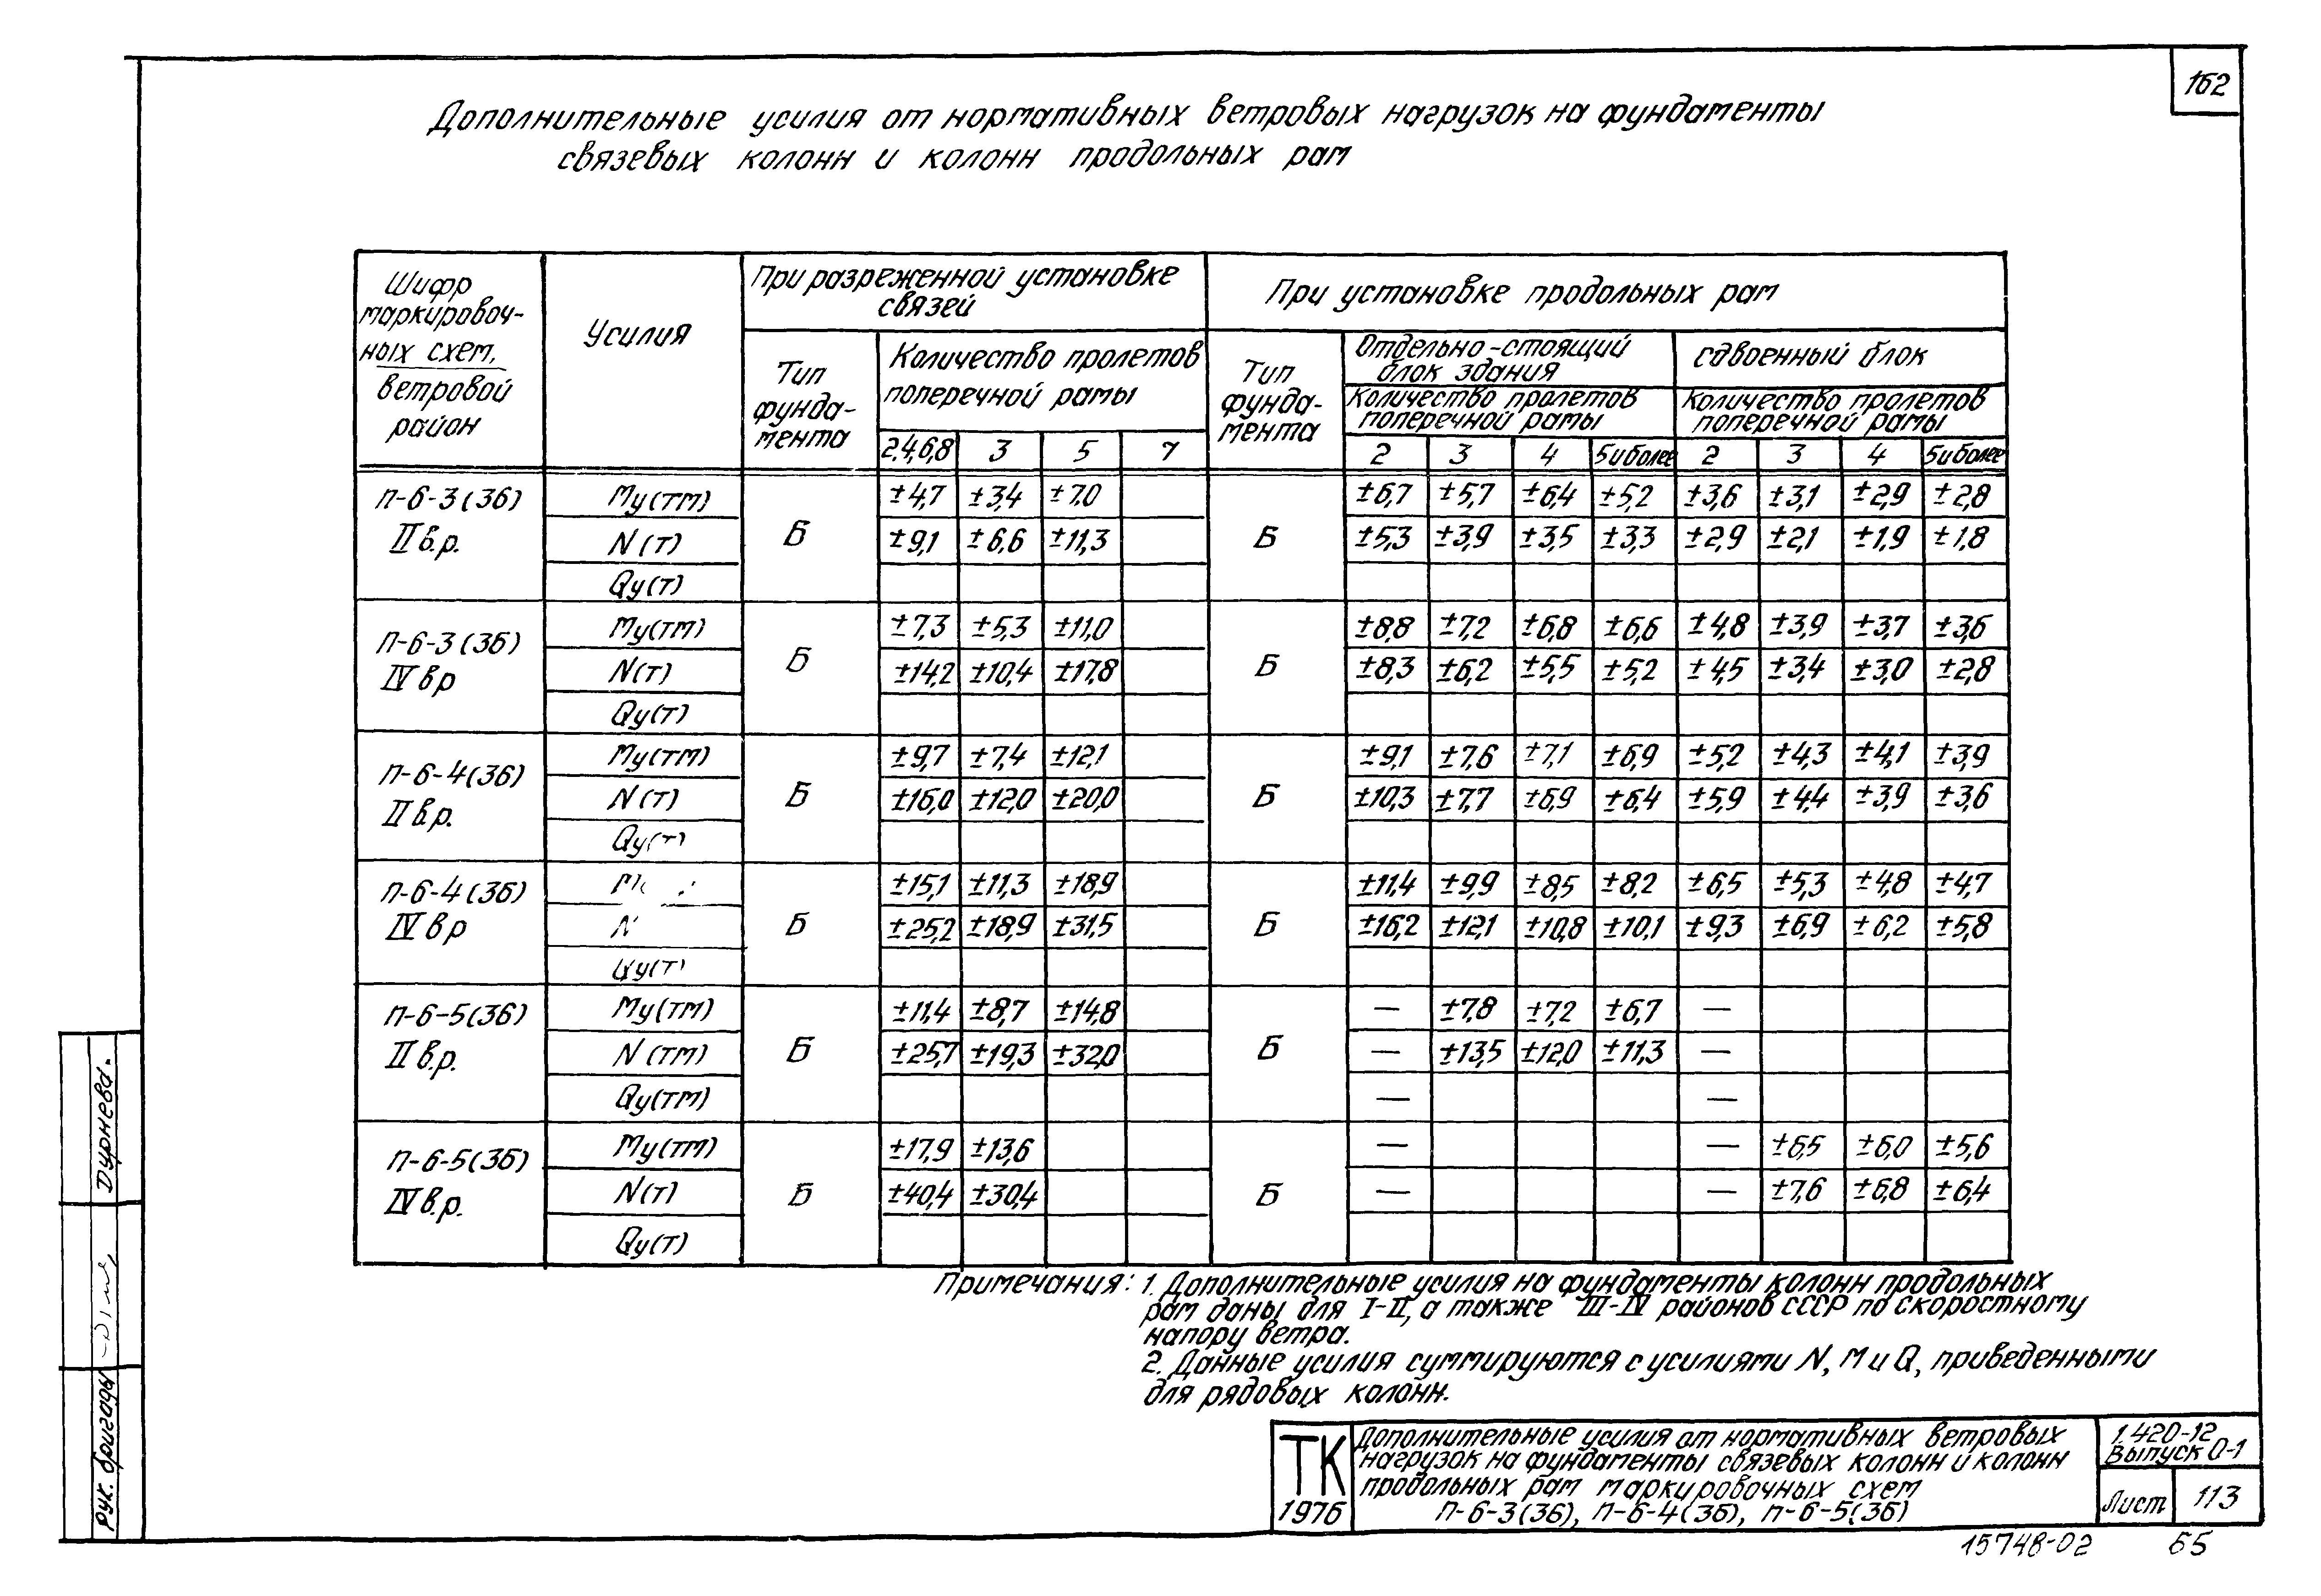 162
Дополнительные усилия от нормативных ветровых нагрузок на фундаменты
связевых колонн и колонн продольных рам
Шифр маркировоч-ных схем, ветровой район | Усилия | При разреженной установке связей | При установке продольных рам
Тип фунда-мента | Количество пролетов поперечной рамы | Тип фунда-мента | Отдельно-стоящий блок здания | Сдвоенный блок
Количество пролетов поперечной рамы | Количество пролетов поперечной рамы
2,4,6,8 | 3 | 5 | 7 | 2 | 3 | 4 | 5 и более | 2 | 3 | 4 | 5 и более
П-6-3(36) II в.р. | Му(тм) | Б | ±4,7 | ±3,4 | ±7,0 | Б | ±6,7 | ±5,7 | ±6,4 | ±5,2 | ±3,6 | ±3,1 | ±2,9 | ±2,8
N(т) | ±9,1 | ±6,6 | ±11,3 | ±5,3 | ±3,9 | ±3,5 | ±3,3 | ±2,9 | ±2,1 | ±1,9 | ±1,8
Qу(т)
П-6-3(36) IV в.р | Му(тм) | Б | ±7,3 | ±5,3 | ±11,0 | Б | ±8,8 | ±7,2 | ±6,8 | ±6,6 | ±4,8 | ±3,9 | ±3,7 | ±3,6
N(т) | ±14,2 | ±10,4 | ±17,8 | ±8,3 | ±6,2 | ±5,5 | ±5,2 | ±4,5 | ±3,4 | ±3,0 | ±2,8
Qу(т)
П-6-4(36) II в.р. | Му(тм) | Б | ±9,7 | ±7,4 | ±12,1 | Б | ±9,1 | ±7,6 | ±7,1 | ±6,9 | ±5,2 | ±4,3 | ±4,1 | ±3,9
N(т) | ±16,0 | ±12,0 | ±20,0 | ±10,3 | ±7,7 | ±6,9 | ±6,4 | ±5,9 | ±4,4 | ±3,9 | ±3,6
Qу(т)
П-6-4(36) IV в.р | М | Б | ±15,1 | ±11,3 | ±18,9 | Б | ±11,4 | ±9,9 | ±8,5 | ±8,2 | ±6,5 | ±5,3 | ±4,8 | ±4,7
N | ±25,2 | ±18,9 | ±31,5 | ±16,2 | ±12,1 | ±10,8 | ±10,1 | ±9,3 | ±6,9 | ±6,2 | ±5,8
Qу(т)
П-6-5(36) II в.р. | Му(тм) | Б | ±11,4 | ±8,7 | ±14,8 | Б | — | ±7,8 | ±7,2 | ±6,7 | —
N(тм) | ±25,7 | ±19,3 | ±32,0 | — | ±13,5 | ±12,0 | ±11,3 | —
Qу(тм) | — | —
П-6-5(36) IV в.р. | Му(тм) | Б | ±17,9 | ±13,6 | Б | — | — | ±6,5 | ±6,0 | ±5,6
N(т) | ±40,4 | ±30,4 | — | — | ±7,6 | ±6,8 | ±6,4
Qу(т)
Примечания: 1. Дополнительные усилия на фундаменты колонн продольных
рам даны для I-II, а также III-IV районов СССР по скоростному
напору ветра.
2. Данные усилия суммируются с усилиями N, М и Q, приведенными
для рядовых колонн.
ТК
1976
Дополнительные усилия от нормативных ветровых
нагрузок на фундаменты связевых колонн и колонн
продольных рам маркировочных схем
П-6-3(36), П-6-4(36), П-6-5(36)
1.420-12
Выпуск 0-1
Лист 113
15748-02 65
Рук. бригады Дурнева.